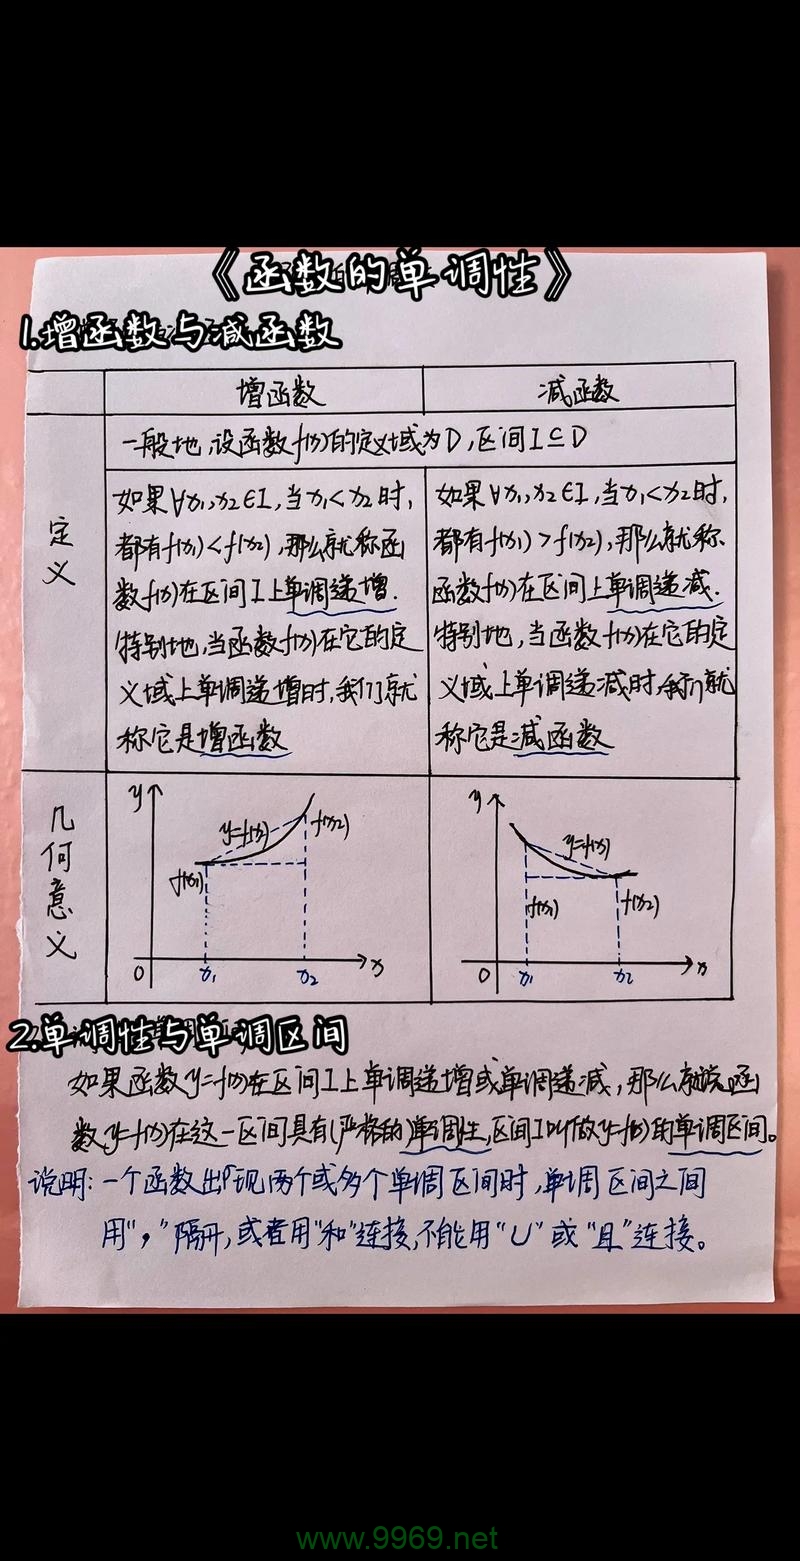 《函数的单调性》
1.增函数与减函数
增函数
减函数
定义
一般地,设函数f(x)的定义域为D,区间I⊆D
如果∀x₁,x₂∈I,当x₁<x₂时,
都有f(x₁)<f(x₂),那么就称函
数f(x)在区间I上单调递增.
特别地,当函数f(x)在它的定
义域上单调递增时,我们就
称它是增函数
如果∀x₁,x₂∈I,当x₁<x₂时,
都有f(x₁)>f(x₂),那么就称
函数f(x)在区间上单调递减.
特别地,当函数f(x)在它的定
义域上单调递减时,我们就
称它是减函数
几何意义
y
y=f(x)
f(x₂)
f(x₁)
O
x₁
x₂
x
y
y=f(x)
f(x₁)
f(x₂)
O
x₁
x₂
x
2.单调性与单调区间
如果函数y=f(x)在区间I上单调递增或单调递减,那么就说函
数y=f(x)在这一区间具有(严格的)单调性,区间I叫做y=f(x)的单调区间。
说明:一个函数出现两个或多个单调区间时,单调区间之间
用“,”隔开,或者用“和”连接,不能用“∪”或“且”连接。
www.9969.net